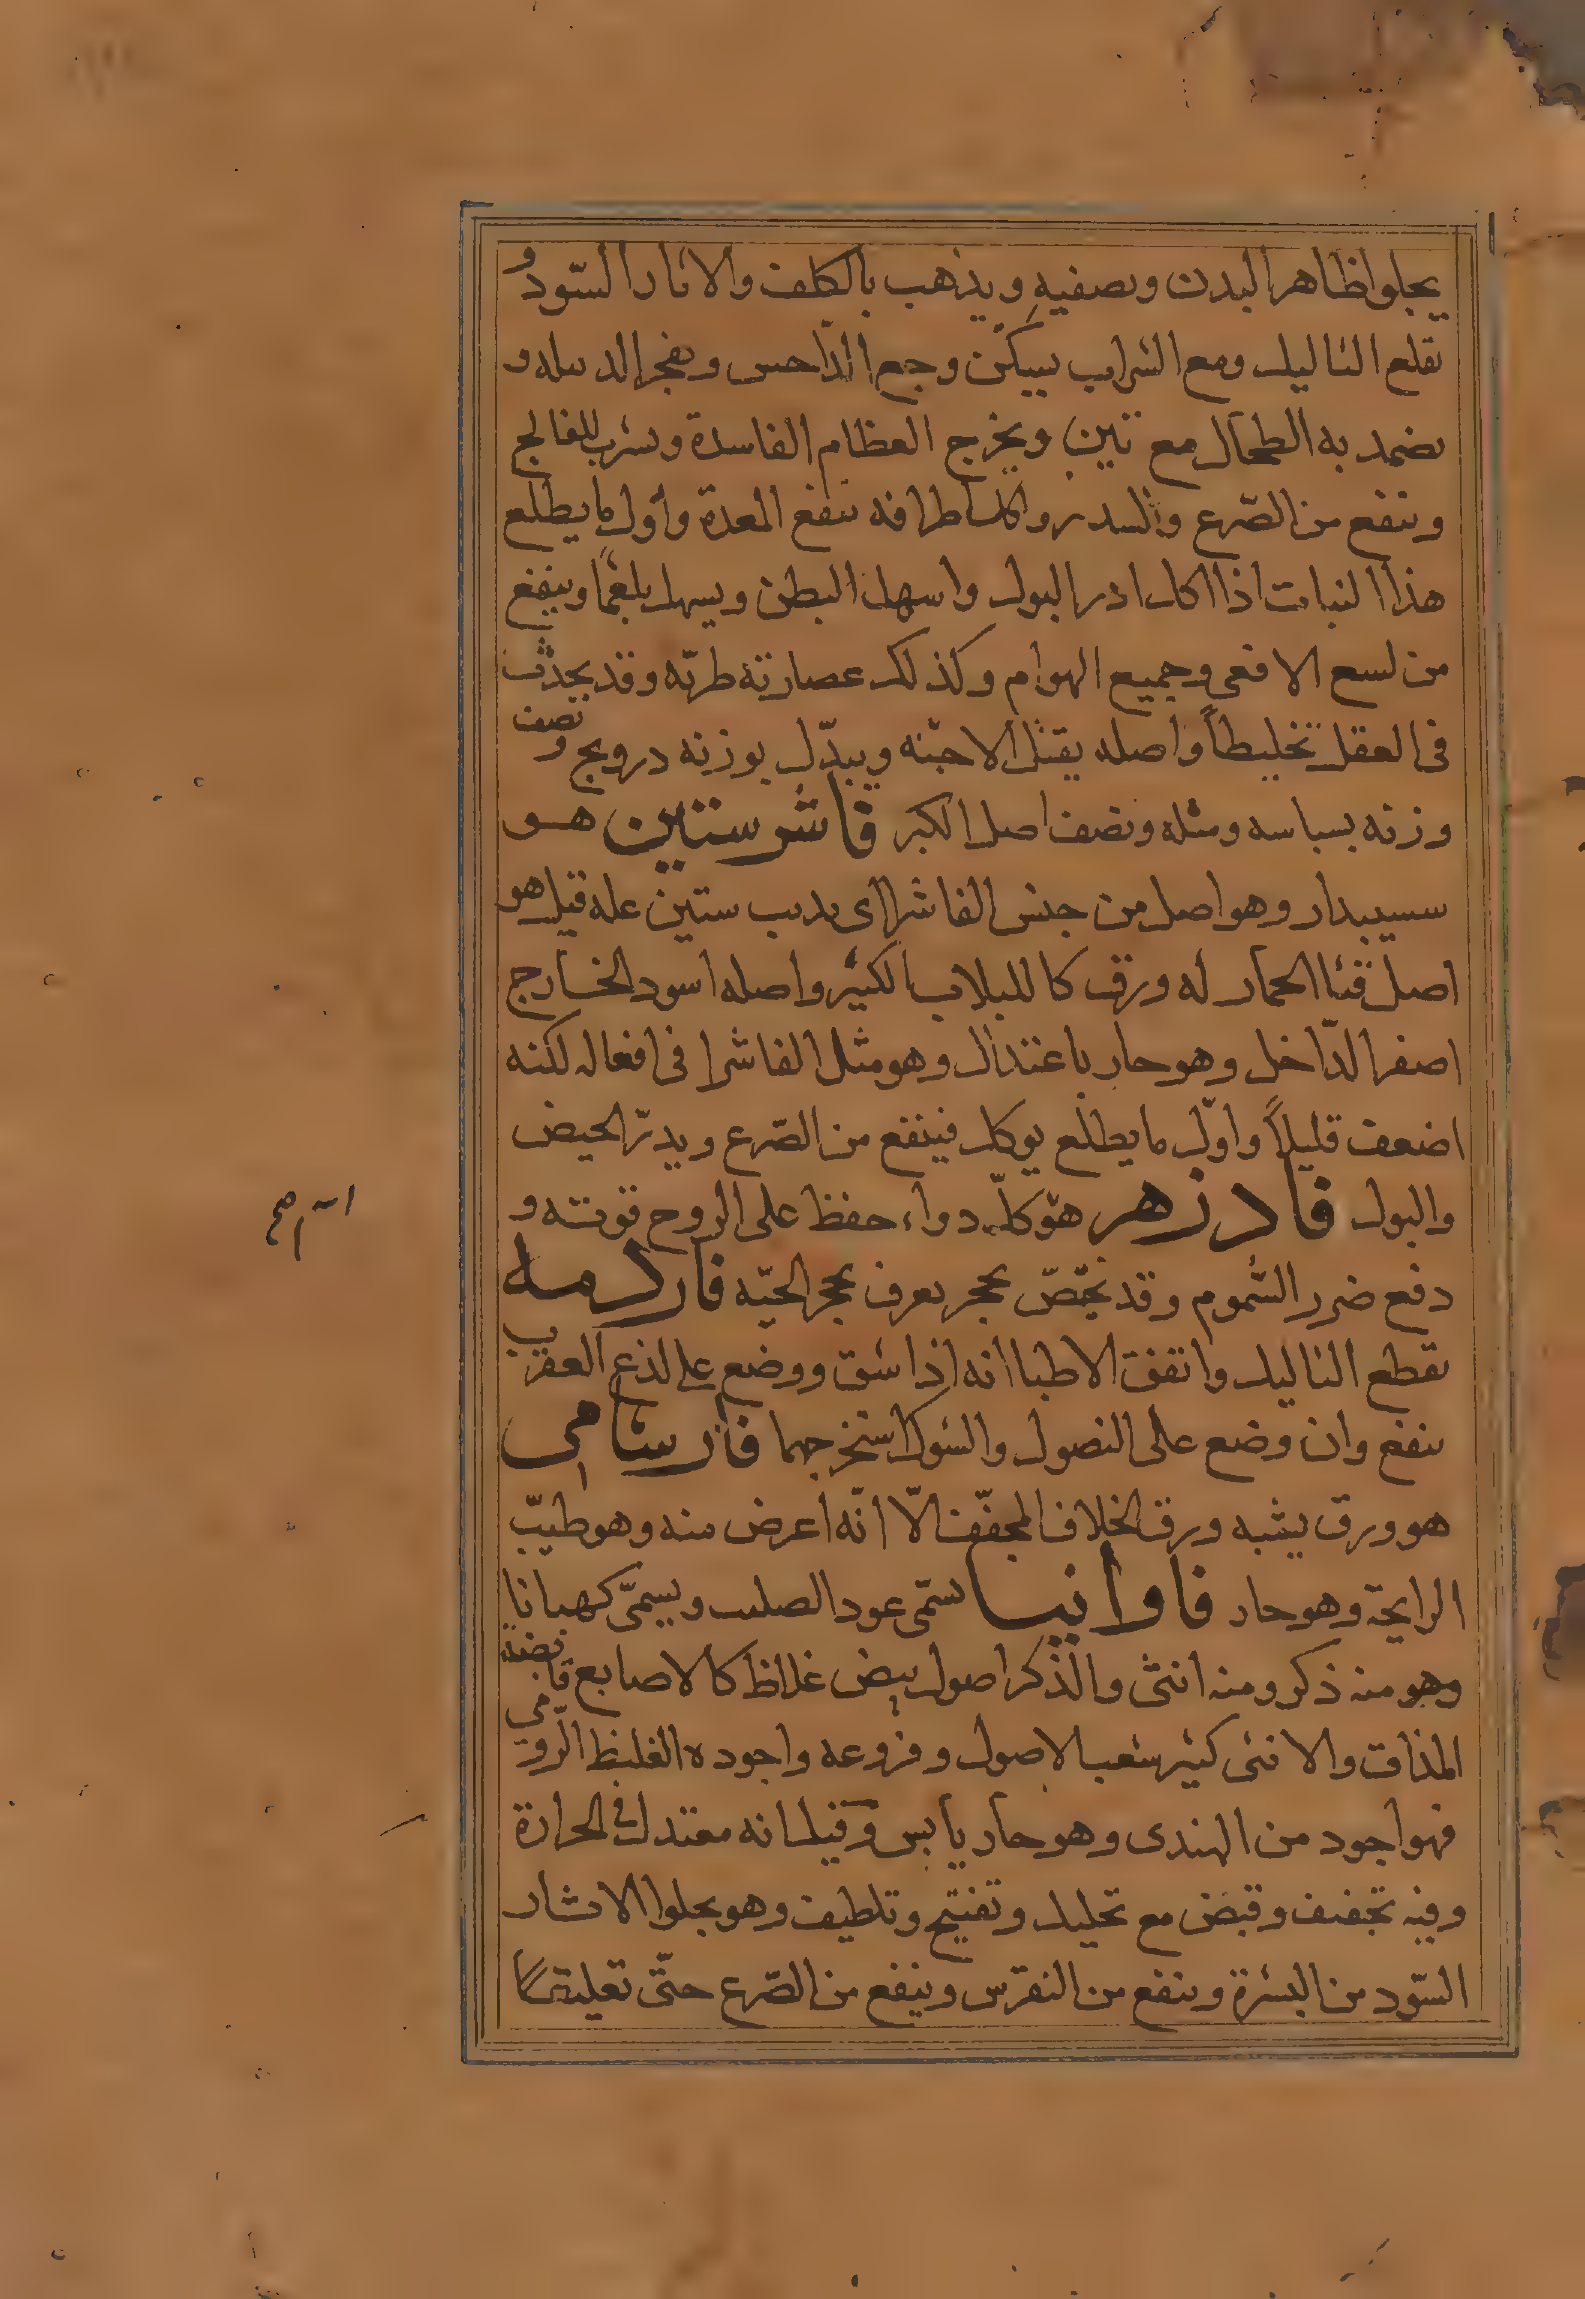 يجلوا ظاهر البدن ويصفيه ويذهب بالكلف والاثار السّود و
يقلع الثاليل ومع الشراب يسكّن وجع الدّاحس ويفجر الدبيله و
يضمد به الطحال مع تين ويخرج العظام الفاسدة ويشرب للفالج
وينفع من الصّرع والسدر واكل اطرافه ينفع المعدة وأول ما يطلع
هذا النبات اذا اكل ادر البول واسهل البطن ويسهل بلغمًا وينفع
من لسع الافعى وجميع الهوام وكذلك عصارته طريّه وقد يحدث
فى العقل تخليطاً واصله يقتل الاجنّه ويبدّل بوزنه درونج ونصف
وزنه بسباسه ومثله ونصف اصل الكبر فاشرستين هو
سسبيدار وهو اصل من جنس الفاشرا اى يدبب ستين عله قيل هو
اصل قثا الحمار له ورق كاللبلاب الكثير واصله اسود الخارج
اصفر الدّاخل وهو حار باعتدال وهو مثل الفاشرا فى افعاله لكنه
اضعف قليلاً واوّل ما يطلع يوكل فينفع من الصّرع ويدرّ الحيض
والبول فادزهر هو كلّ دواء حفظ على الروح قوته و
دفع ضرر السّموم وقد يختصّ بحجر يعرف بحجر الحيّه فار
يقطع الثاليل واتفق الاطبا انه اذا شق ووضع على لذع العقرب
ينفع وان وضع على النصول والشوك استخرجهما
هو ورق يشبه ورق الخلاف المجفّف الّا انّه اعرض منه وهو طيّب
الرايحة وهو حار فاوانيا يسمّى عود الصليب ويسمّى كهيانا
وهو منه ذكر ومنه انثى والذكر اصول بيض غلاظ كالاصابع قابضة
المذاق والانثى كثير شعب الاصول وفروعه واجوده الغليظ الرّومى
فهو اجود من الهندى وهو حار يابس وقيل انه معتدل فى الحرارة
وفيه تجفيف وقبض مع تحليل وتفتيح وتلطيف وهو يجلوا الاثار
السّود من البشرة وينفع من النقرس وينفع من الصّرع حتّى تعليقًا